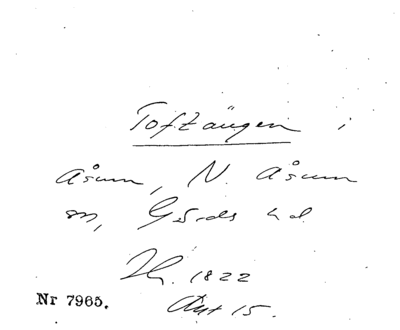 Toftängen i
Åsum, N. Åsum
sn, Gärds hd.
Th. 1822
Akt 15.
Nr 7965.